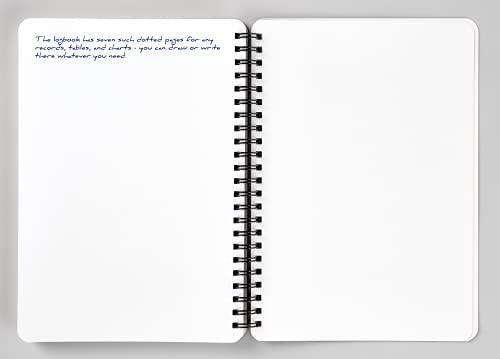 The logbook has seven such dotted pages for any
records, tables, and charts - you can draw or write
there whatever you need.